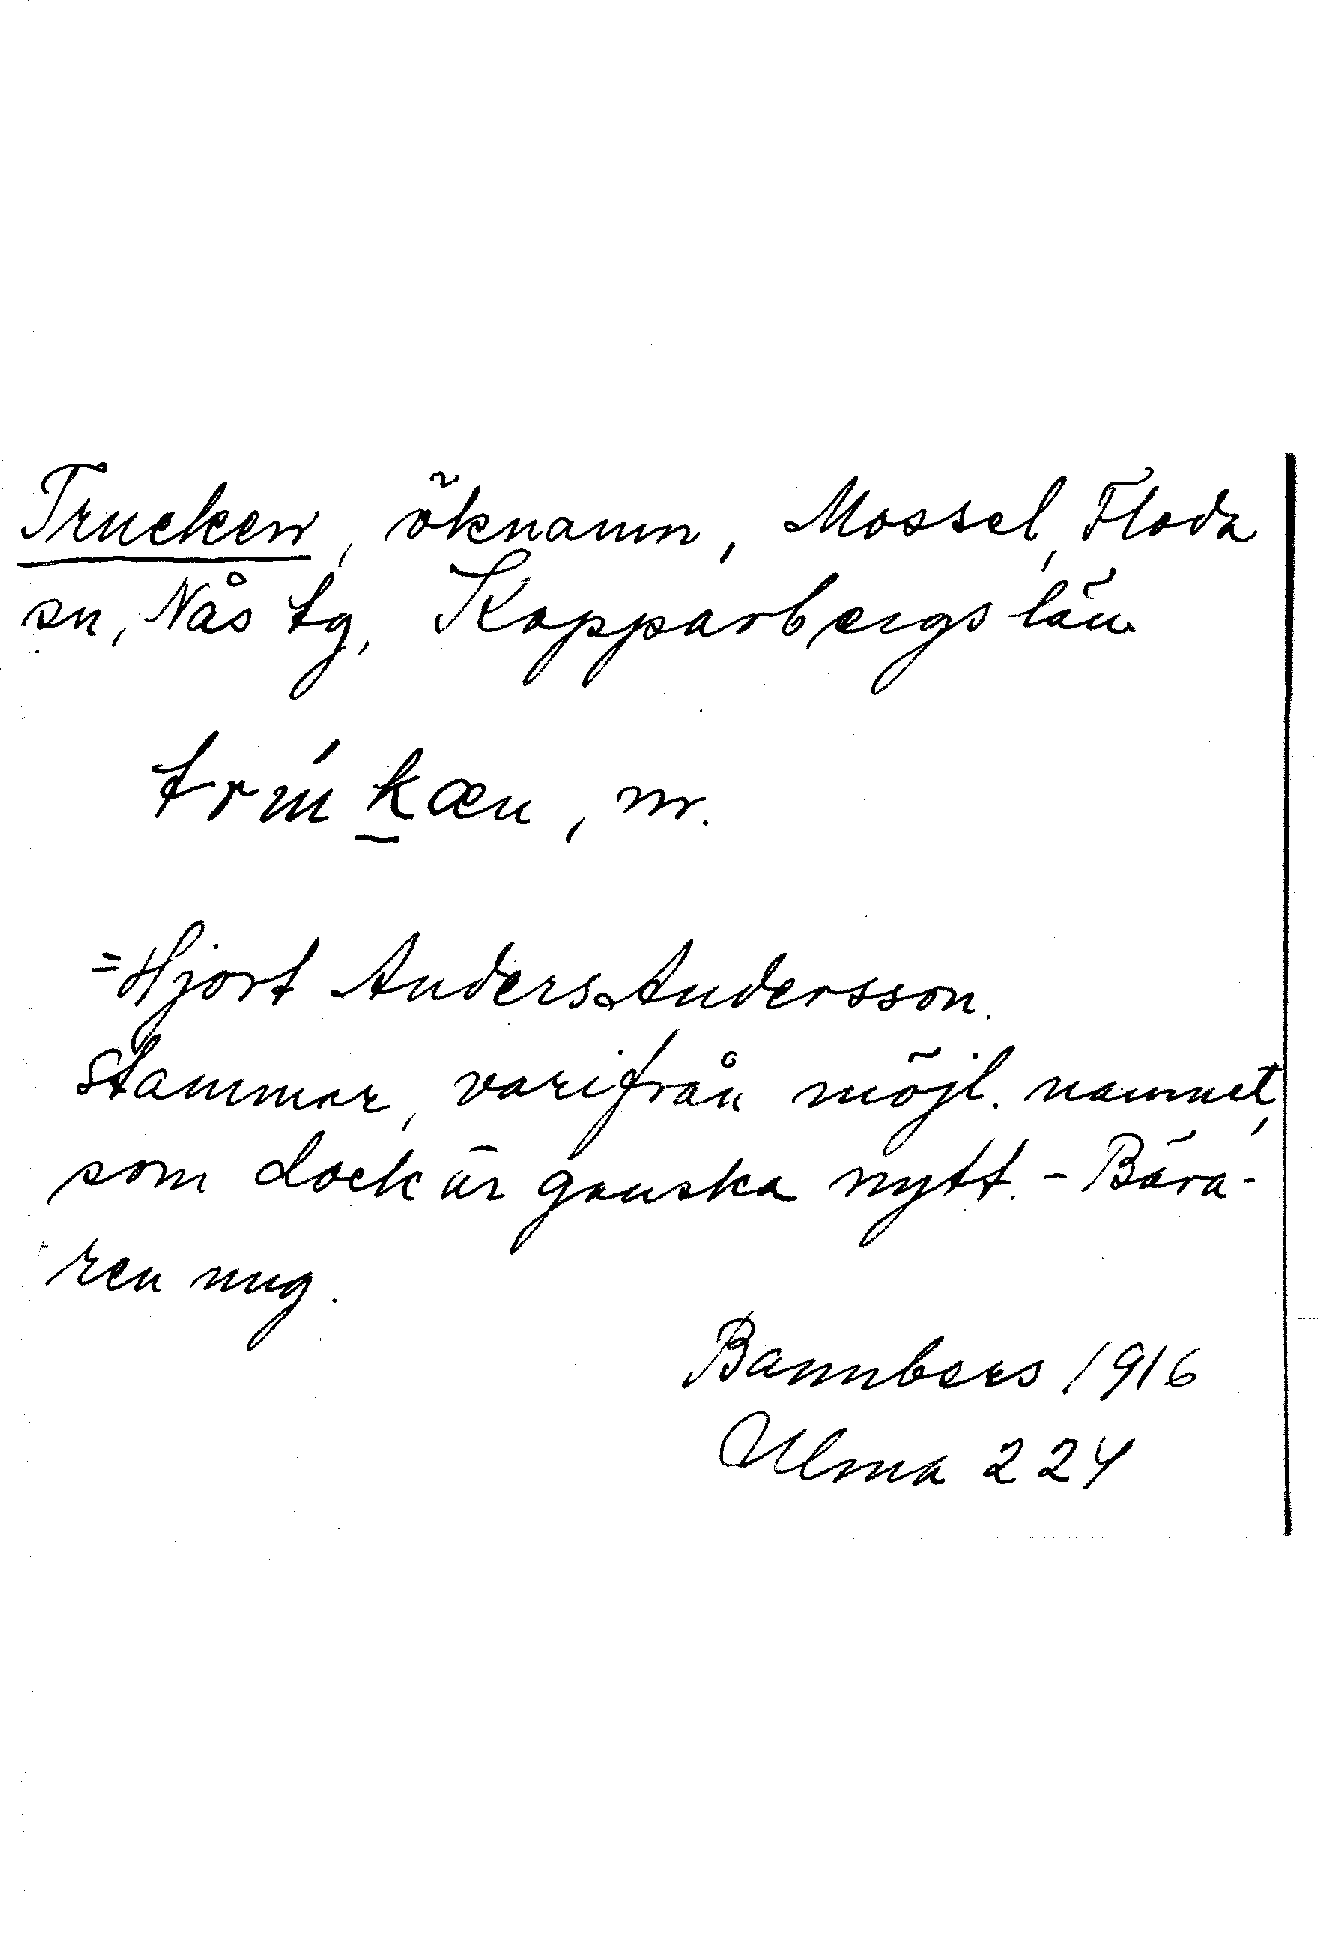 Trucken, öknamn, Mossel, Floda
sn, Nås tg, Kopparbergs län
trúkæn, m.
=Hjort Anders Andersson.
Stammar, varifrån möjl. namnet,
som dock är ganska nytt. - Bära-
ren ung.
Bannbers 1916
Ulma 224